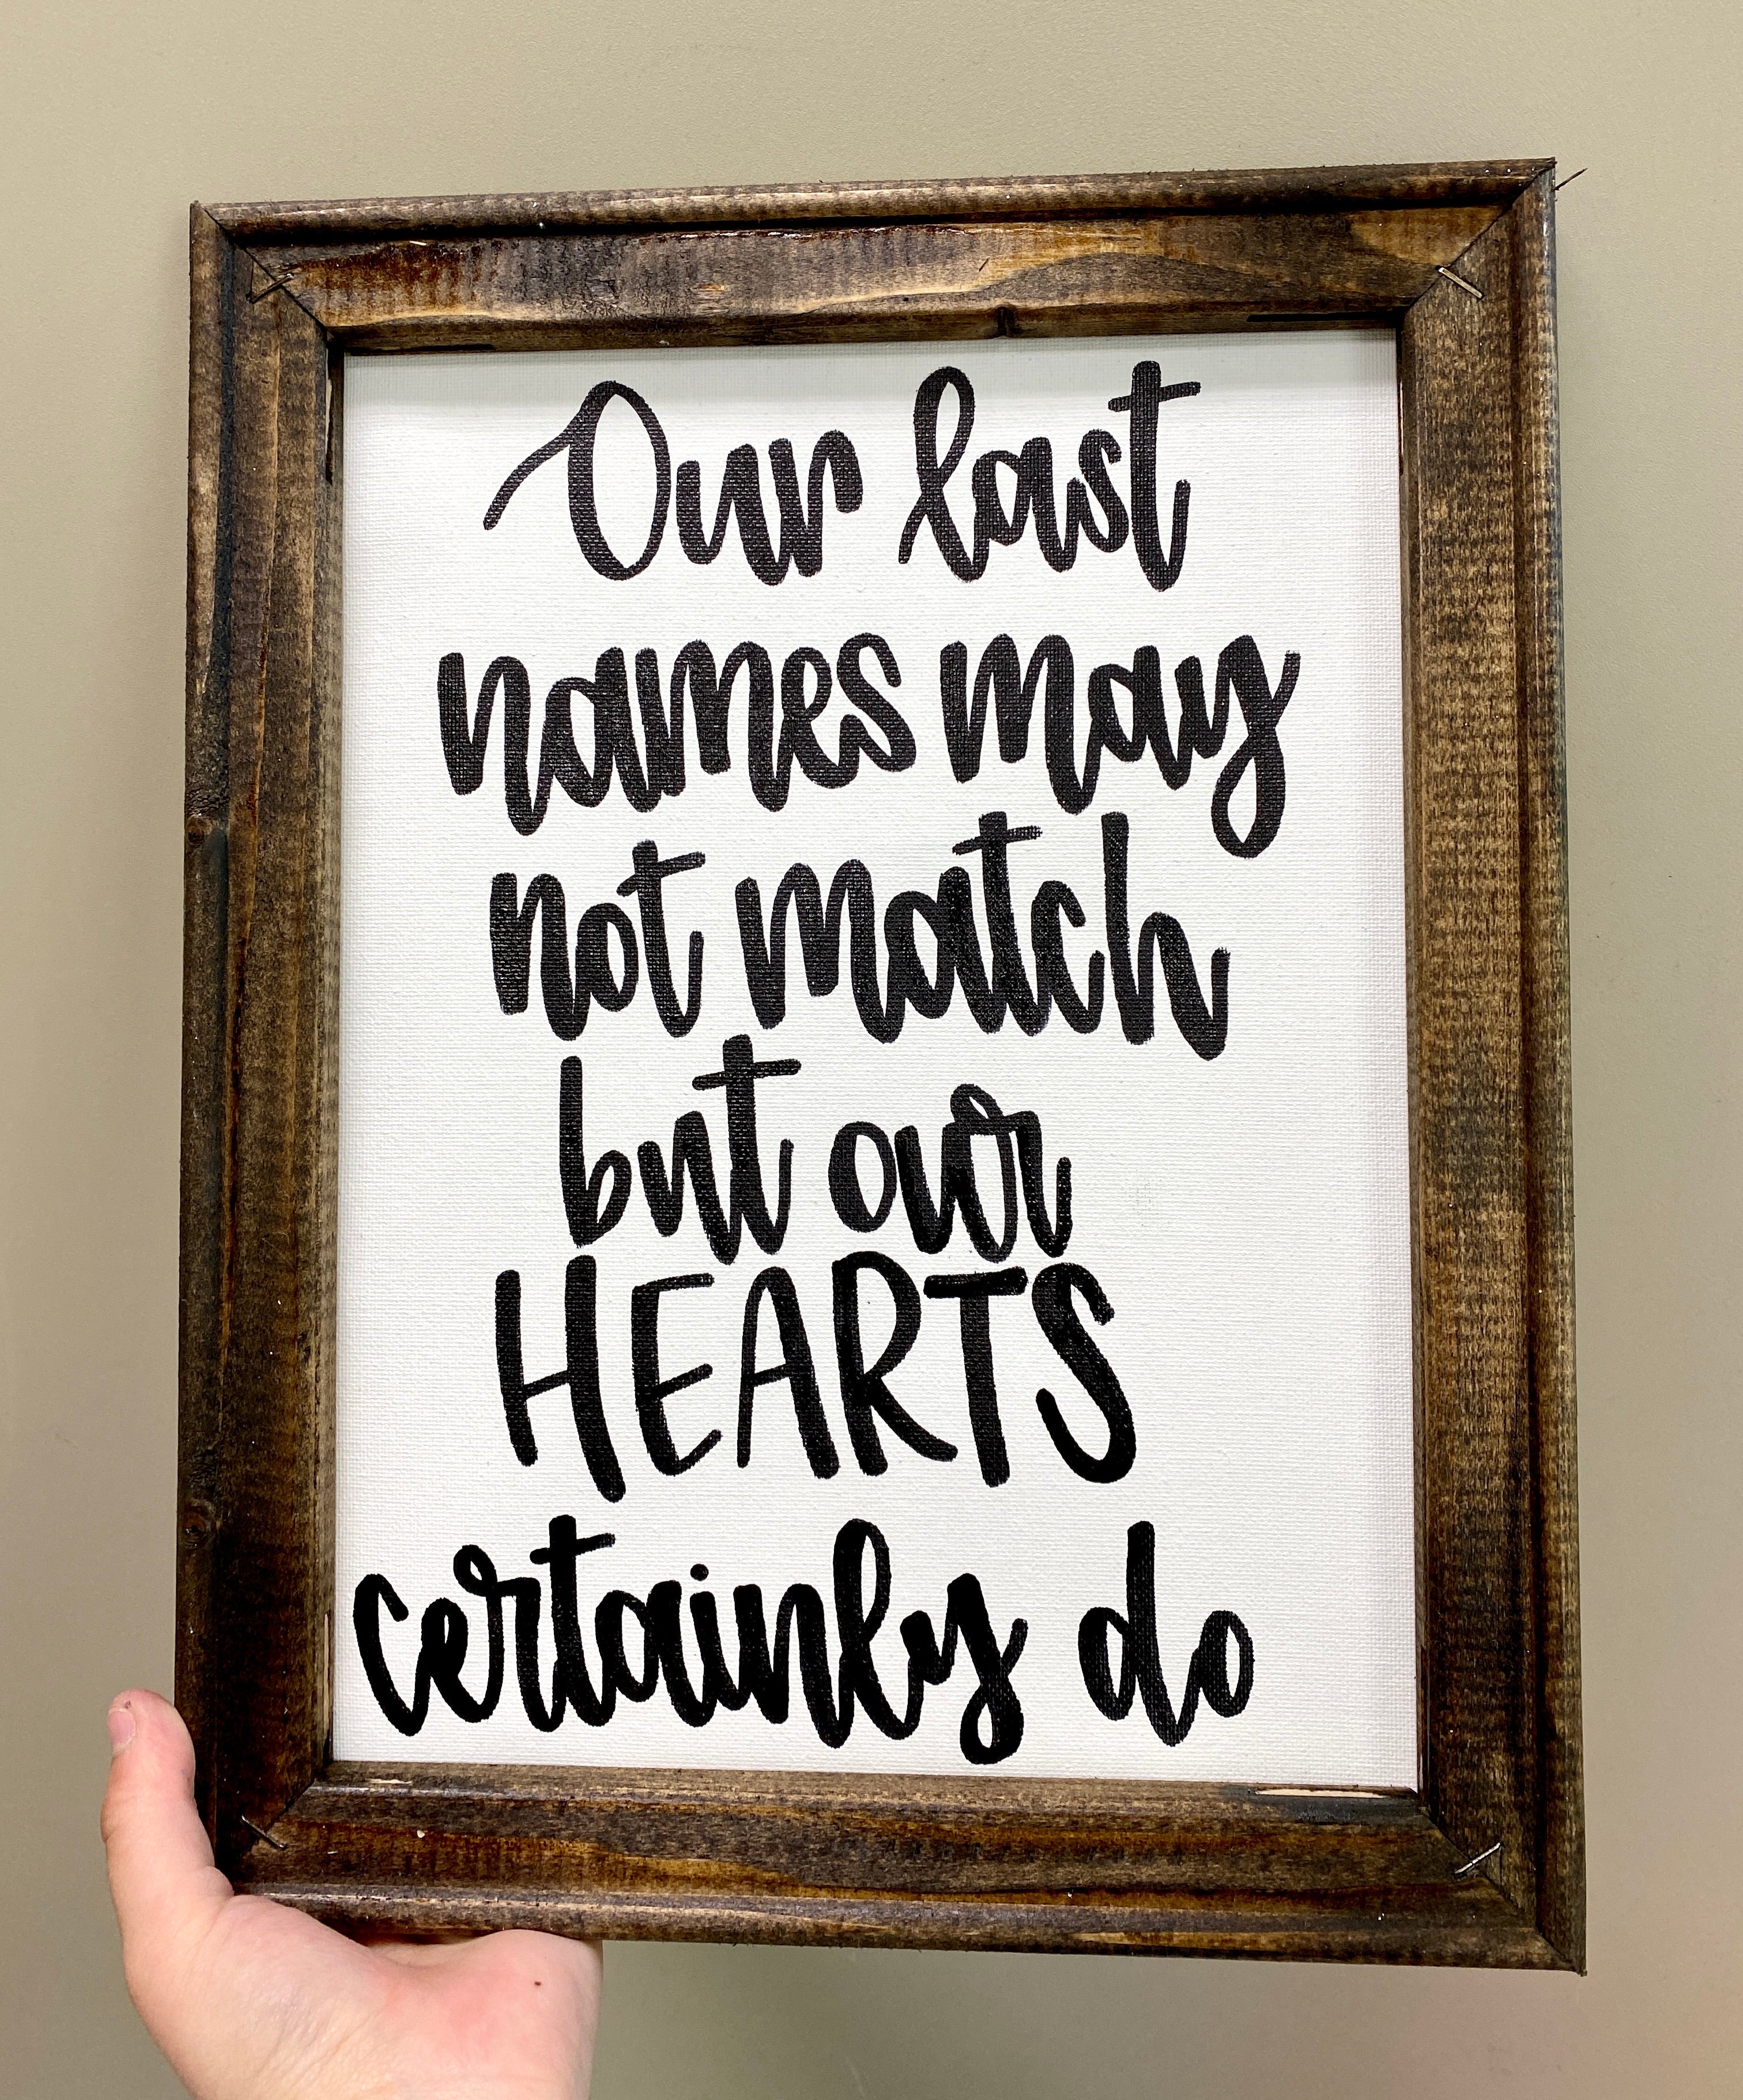 Our last
names may
not match
but our
HEARTS
certainly do